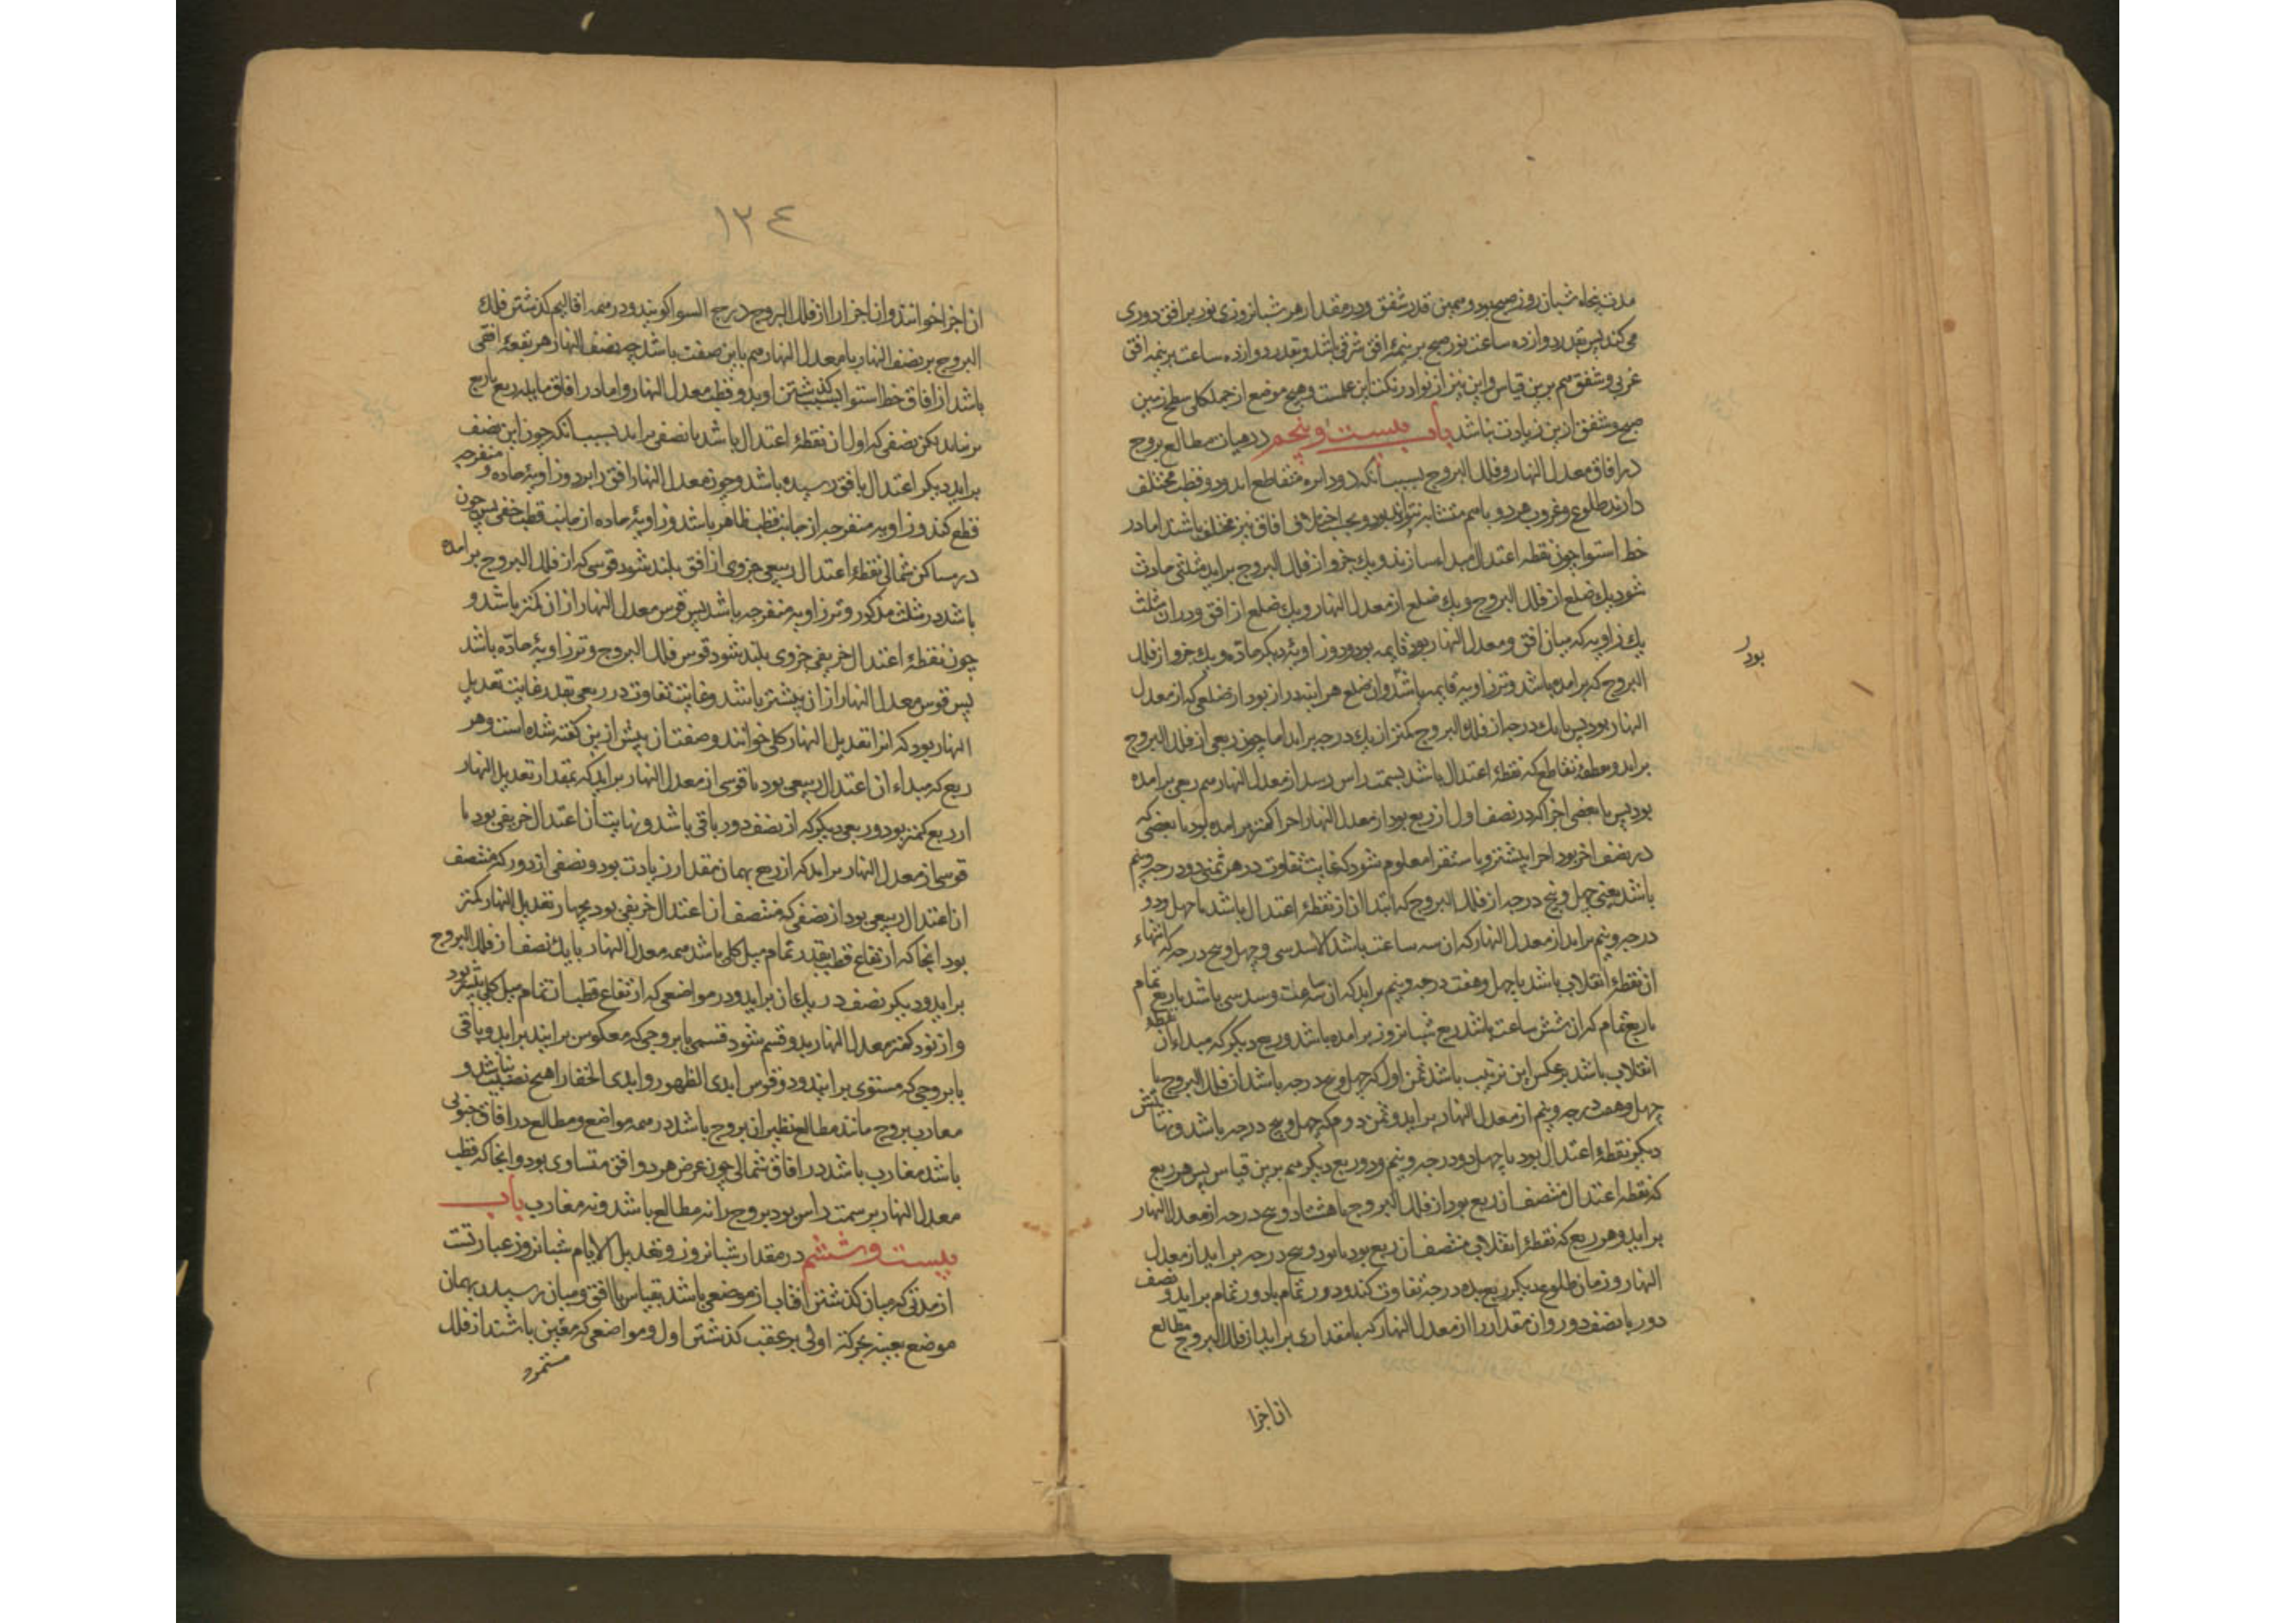 مدت پنجاه شبانروز صبح بود و همین قدر شفق و در مقدار هر شبانروزی نور بر افق دوری
می کند پس بقدر دوازده ساعت نور صبح بر نیمهٔ افق شرقی باشد و بقدر دوازده ساعت بر نیمه افق
غربی و شفق هم برین قیاس و این نیز از نوادر نکت این علمست و هیچ موضع از جمله کل سطح زمین
صبح و شفق ازین زیادت نباشد باب بیست و پنجم در بیان مطالع بروج
در افاق معدل النهار و فلک البروج بسبب انکه دو دایره متقاطع اند و دو قطب مختلف
دارند طلوع و غروب هر دو باهم متشابه نتواند بود و بحسب اختلاف افاق نیز مختلف باشند اما در
خط استوا چون نقطه اعتدال مبداء سازند و یک جزو از فلک البروج براید مثلثی حادث
شود یک ضلع از فلک البروج و یک ضلع از معدل النهار و یک ضلع از افق و در ان مثلث
یک زاویه که میان افق و معدل النهار بود قایمه بود و دو زاویهٔ دیکر حادّه و یک جزو از فلک
البروج که برامده باشد وتر زاویه قایمه باشد و ان ضلع هراینه دراز بود از ضلعی که از معدل
النهار بود پس با یک درجه از فلک البروج کمتر از یک درجه براید اما چون ربعی از فلک البروج
براید و نقطهٔ تقاطع که نقطهٔ اعتدال باشد بسمت راس رسد از معدل النهار هم ربعی برامده
بود پس با بعضی اجزا که در نصف اول از ربع بود از معدل النهار اجزا کمتر برامده بود با بعضی که
در نصف اخر بود اجزا بیشتر و باستقرا معلوم شود که غایت تفاوت در هر ثمنی دو درجه و نیم
باشد یعنی چهل و پنج درجه از فلک البروج که ابتدا ان از نقطهٔ اعتدال باشد با چهل و دو
درجه و نیم براید از معدل النهار که ان سه ساعت باشد الا سدسی و چهل و پنج درجه که انتهاء
ان نقطهٔ انقلاب باشد با چهل و هفت درجه و نیم براید که ان سه ساعت و سدسی باشد تا ربع تمام
با ربع تمام که ان شش ساعت باشد ربع شبانروز برامده باشد و ربع دیکر که مبداء ان نقطهٔ
انقلاب باشد بر عکس این ترتیب باشد ثمن اول که چهل و پنج درجه باشد از فلک البروج با
چهل و هفت درجه و نیم از معدل النهار براید و ثمن دوم که چهل و پنج درجه باشد و نهایتش
دیکر نقطهٔ اعتدال بود با چهل دو درجه و نیم و دو ربع دیکر هم برین قیاس پس هر ربع
که نقطه اعتدال منتصف ان ربع بود از فلک البروج با هشتاد و پنج درجه از معدل النهار
براید و هر ربع که نقطهٔ انقلاب منتصف ان ربع بود با نود و پنج درجه براید از معدل
النهار و زمان طلوع دیکر ربع بده درجه تفاوت کند و دور تمام با دور تمام براید و نصف
دور با نصف دور و ان مقدار را از معدل النهار که با مقداری براید از فلک البروج مطالع
ان اجزا
بود
١٢٤
ان اجزا خوانند و ان اجزا را از فلک البروج درج السوا کویند و در همه اقالیم کذشتن فلک
البروج بر نصف النهار با معدل النهار هم باین صفت باشد چه نصف النهار هر بقعهٔ افقی
باشد از افاق خط استوا بسبب کذشتن او بدو قطب معدل النهار و اما در افاق مایله ربع با ربع
برنیاید لکن نصفی که اول ان نقطهٔ اعتدال باشد با نصفی براید بسبب انکه چون این نصف
براید دیکر اعتدال بافق رسیده باشد و چون معدل النهار افق را بر دو زاویهٔ حاده و منفرجه
قطع کند و زاویه منفرجه از جانب قطب ظاهر باشد و زاویهٔ حاده از جانب قطب خفی پس چون
در مساکن شمالی نقطهٔ اعتدال ربیعی جزوی از افق بلند شود قوسی که از فلک البروج برامده
باشد در مثلث مذکور وتر زاویه منفرجه باشد پس قوس معدل النهار از ان کمتر باشد و
چون نقطهٔ اعتدال خریفی جزوی بلند شود قوس فلک البروج وتر زاویهٔ حادّه باشد
پس قوس معدل النهار از ان بیشتر باشد و غایت تفاوت در ربعی بقدر غایت تعدیل
النهار بود که انرا تعدیل النهار کلی خوانند و صفت ان پیش ازین کفته شده است و هر
ربع که مبداء ان اعتدال ربیعی بود با قوسی از معدل النهار براید که بمقدار تعدیل النهار
از ربع کمتر بود و ربعی دیکر که از نصف دور باقی باشد و نهایت ان اعتدال خریفی بود با
قوسی از معدل النهار براید که از ربع بهمان مقدار زیادت بود و نصفی از دور که منتصف
ان اعتدال ربیعی بود از نصفی که منتصف ان اعتدال خریفی بود بچهار تعدیل النهار کمتر
بود انجا که ارتفاع قطب بقدر تمام میل کلی باشد همه معدل النهار با یک نصف از فلک البروج
براید و دیکر نصف در یک ان براید و در مواضعی که ارتفاع قطب از تمام میل کلی بیشتر بود
و از نود کمتر معدل النهار بدو قسم شود قسمی با بروجی که معکوس برایند براید و باقی
با بروجی که مستوی برایند و دو قوس ابدی الظهور و ابدی الخفا را هیچ نصیب نباشد و
مغارب بروج مانند مطالع نظیر ان بروج باشد در همه مواضع و مطالع در افاق جنوبی
باشد مغارب باشد در افاق شمالی چون عرض هر دو افق متساوی بود و انجا که قطب
معدل النهار بر سمت راس بود بروج را نه مطالع باشد و نه مغارب باب
بیست و ششم در مقدار شبانروز و تعدیل الایام شبانروز عبارتست
از مدتی که میان کذشتن افتاب از موضعی باشد بقیاس با افق و میان رسیدن بهمان
موضع بعینه بحرکة اولی بر عقب کذشتن اول و مواضعی که معین باشند از فلک